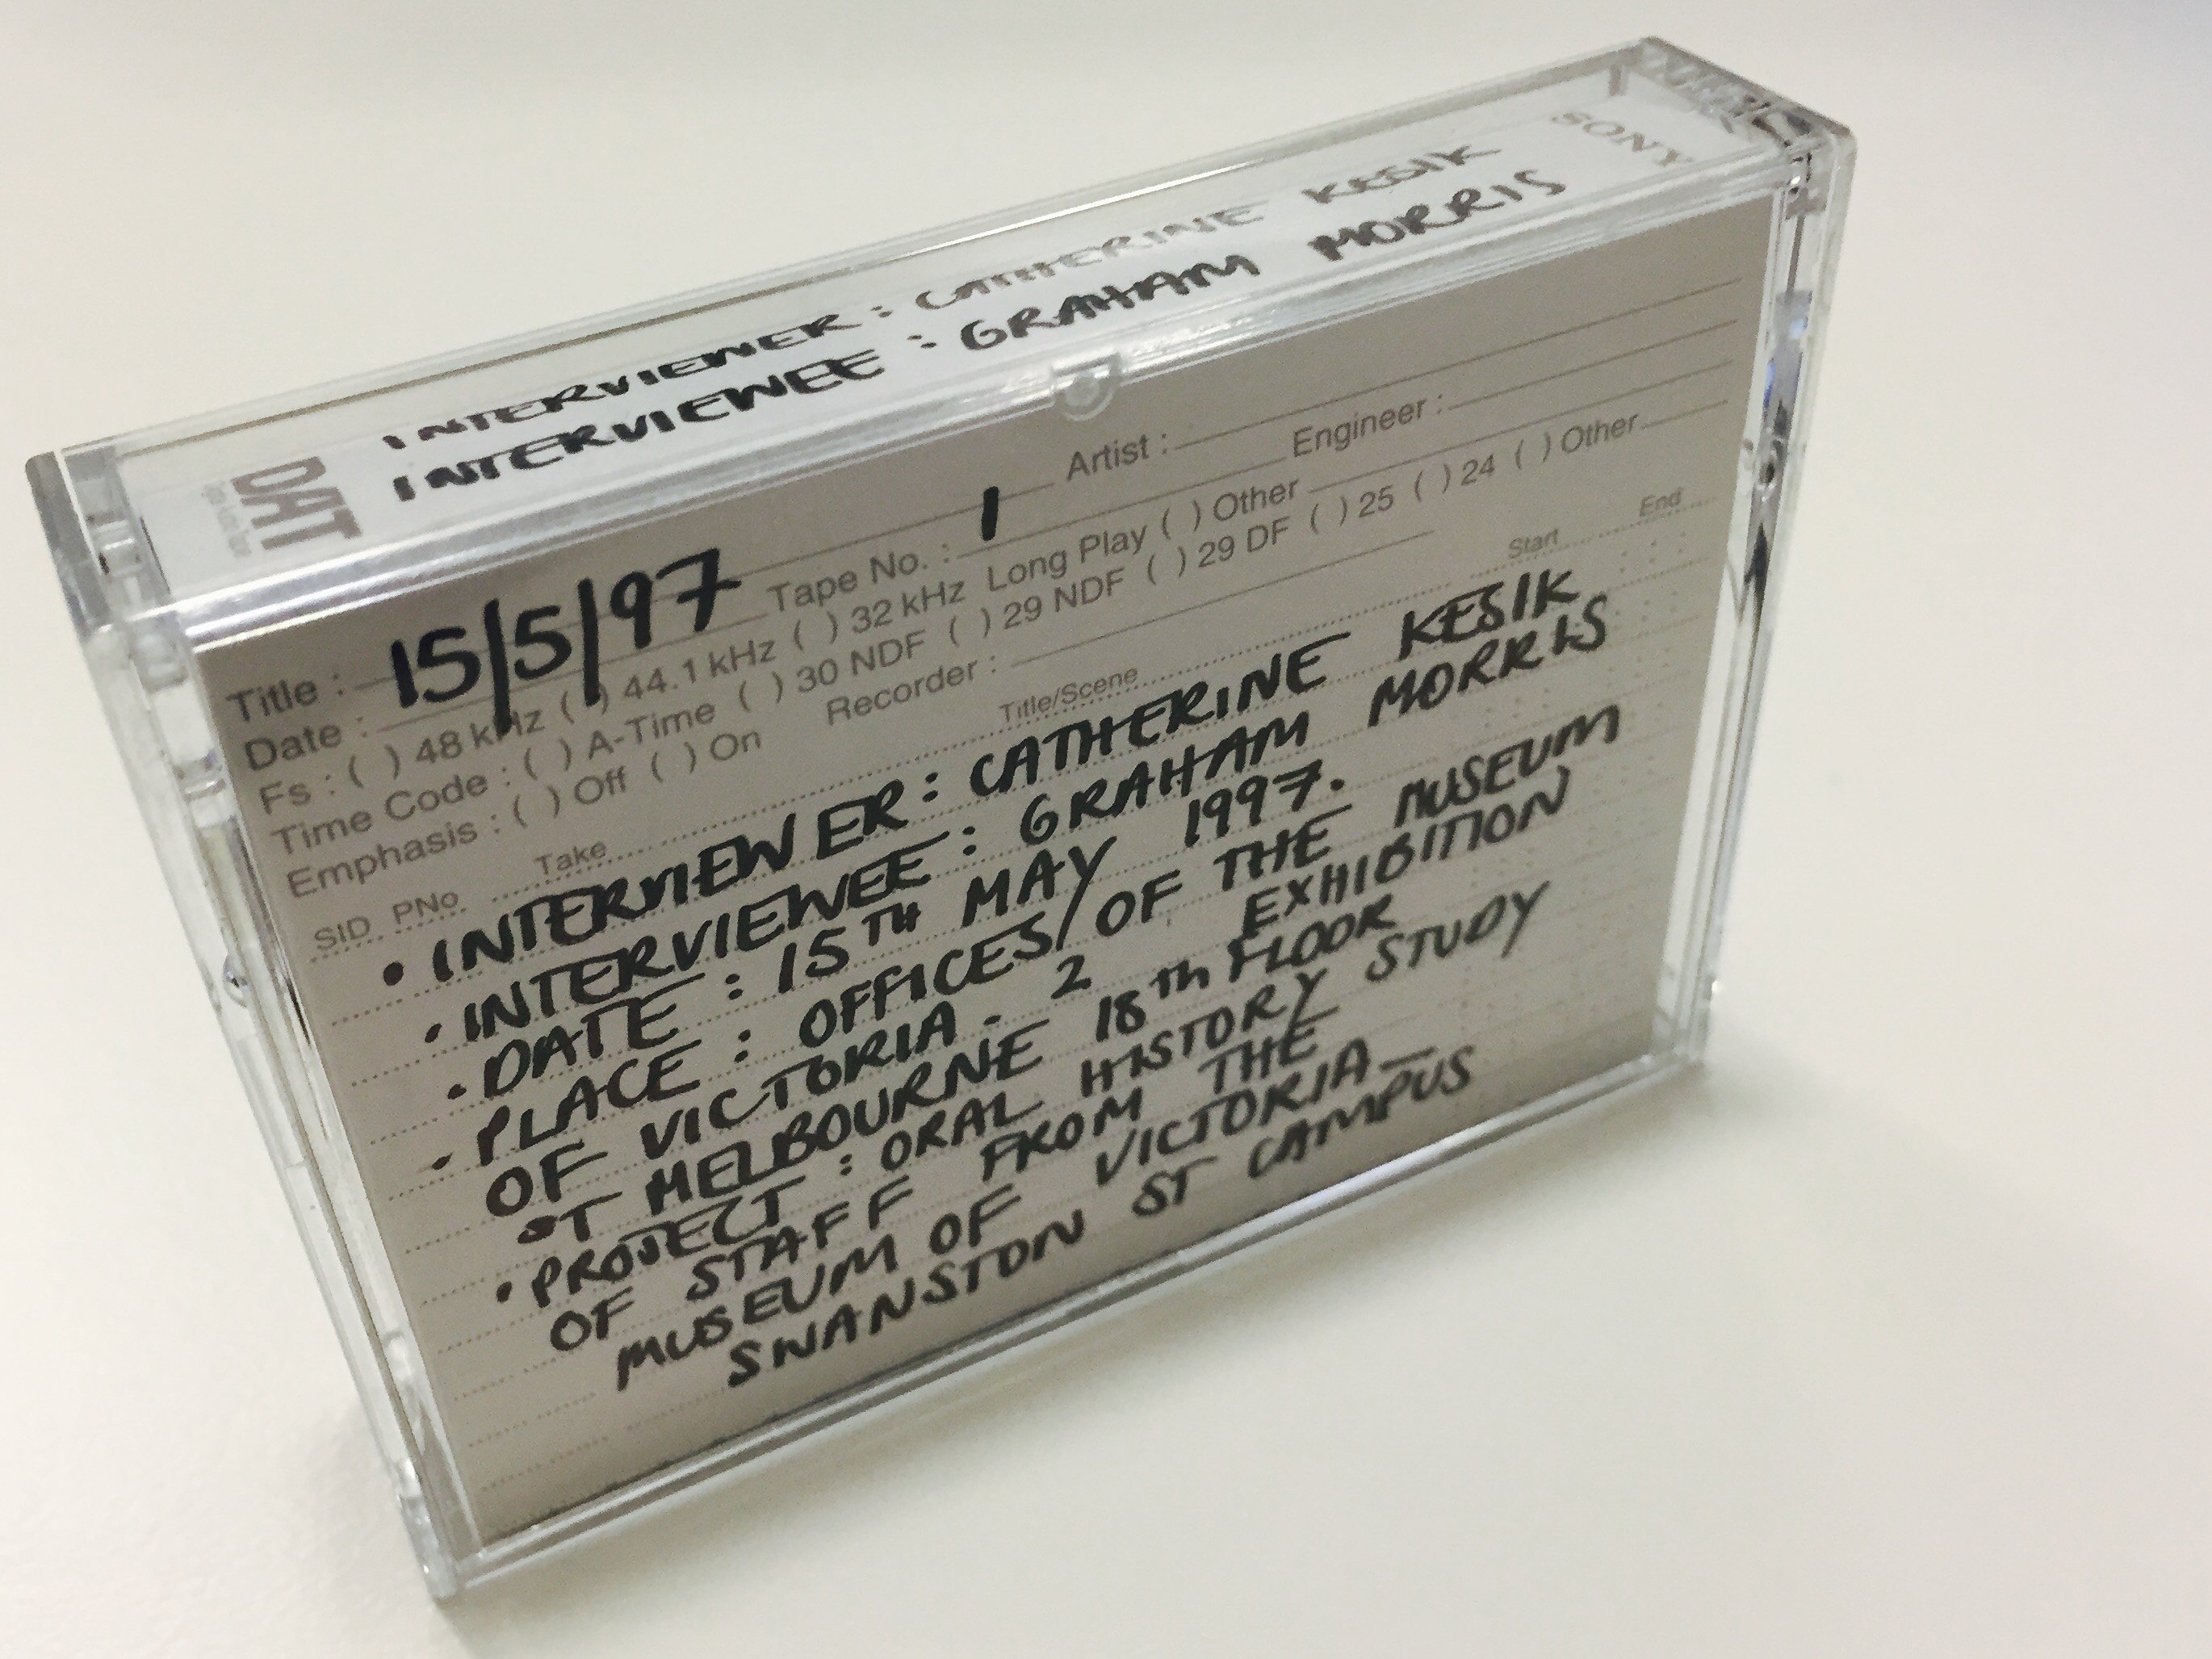 SONY
INTERVIEWER : CATHERINE KESIK
DAT INTERVIEWEE : GRAHAM MORRIS
Artist :
Title : Tape No. : 1 Engineer :
Date : 15/5/97
Fs : ( ) 48 kHz ( ) 44.1 kHz ( ) 32 kHz Long Play ( ) Other
Time Code : ( ) A-Time ( ) 30 NDF ( ) 29 NDF ( ) 29 DF ( ) 25 ( ) 24 ( ) Other
Emphasis : ( ) Off ( ) On Recorder :
SID PNo Take Title/Scene Start End
• INTERVIEWER : CATHERINE KESIK
• INTERVIEWEE : GRAHAM MORRIS
• DATE : 15TH MAY 1997.
• PLACE : OFFICES/OF THE MUSEUM
OF VICTORIA. 2 EXHIBITION
ST MELBOURNE 18th FLOOR
• PROJECT : ORAL HISTORY STUDY
OF STAFF FROM THE
MUSEUM OF VICTORIA—
SWANSTON ST CAMPUS